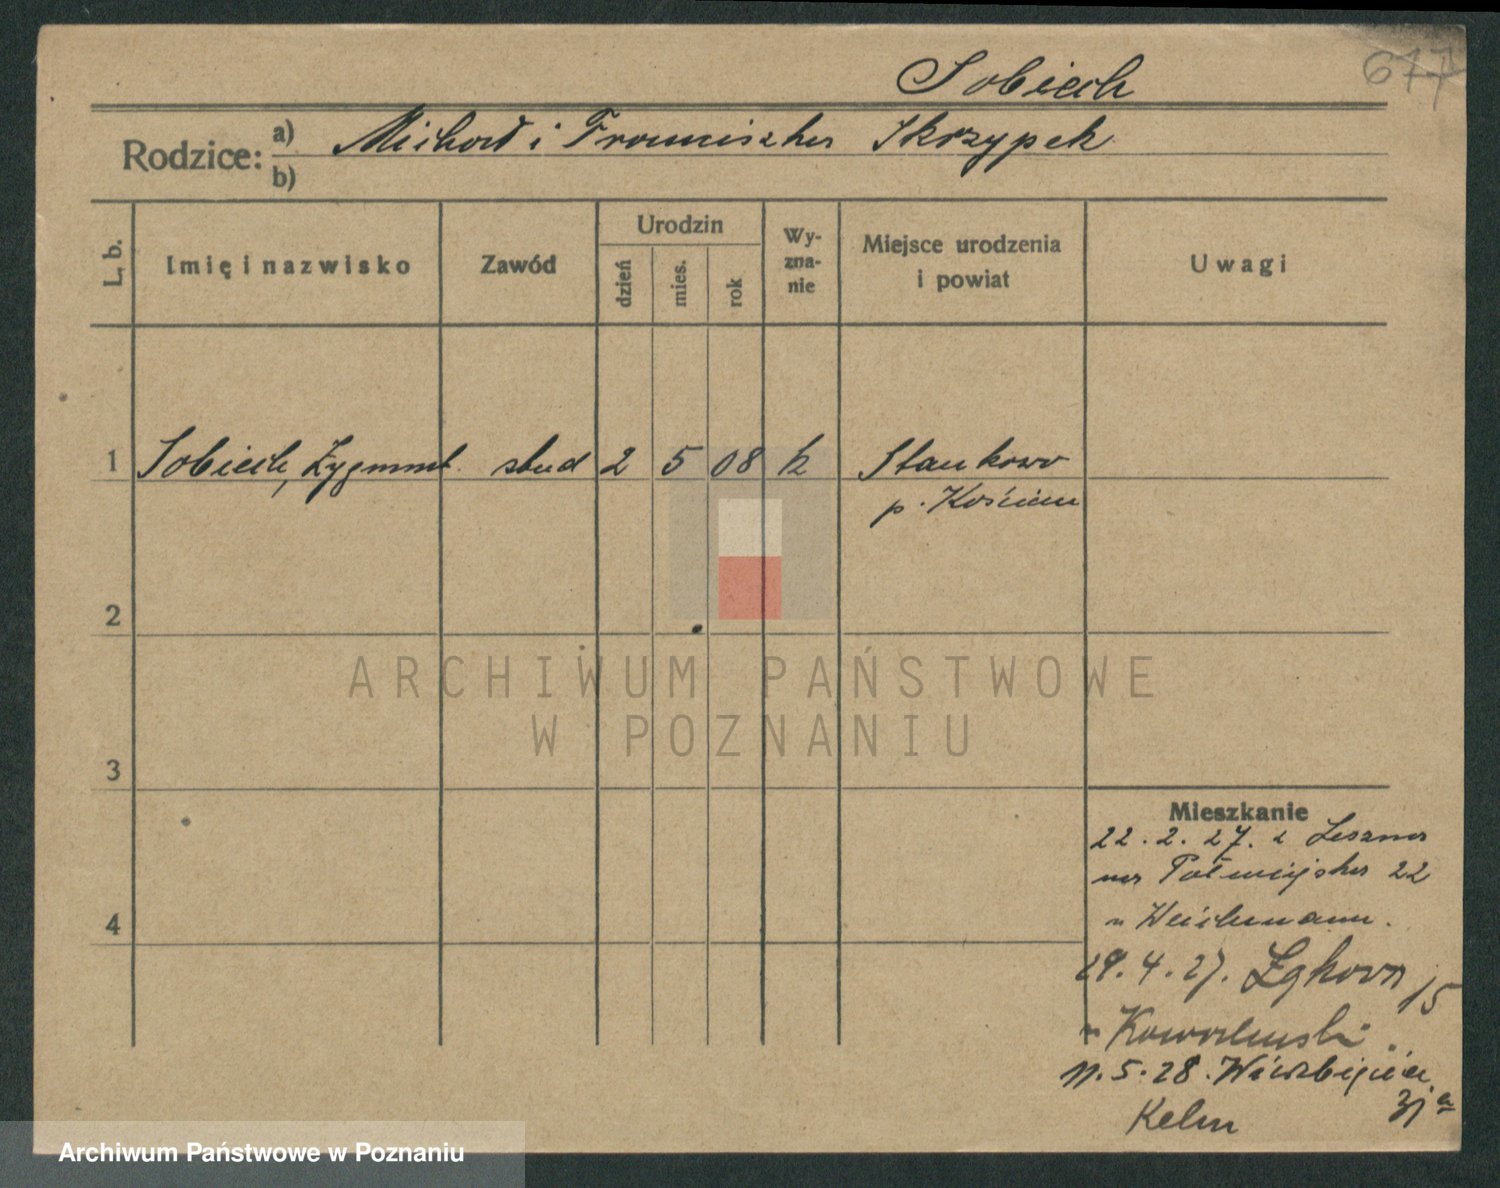 677
Sobiech
Rodzice: a) Michał i Franciszka Skrzypek
b)
L. b.
Imię i nazwisko
Zawód
Urodzin
dzień
mies.
rok
Wy-
zna-
nie
Miejsce urodzenia
i powiat
Uwagi
1 Sobiech, Zygmunt stud 2 5 08 k Stankowo
p. Kościan
2
3
4
ARCHIWUM PAŃSTWOWE
W POZNANIU
Mieszkanie
22.2.27. z Leszna
na Półwiejska 22
29.4.27. Łąkowa 15
11.5.28. Wierzbięcice
Kelm
Archiwum Państwowe w Poznaniu